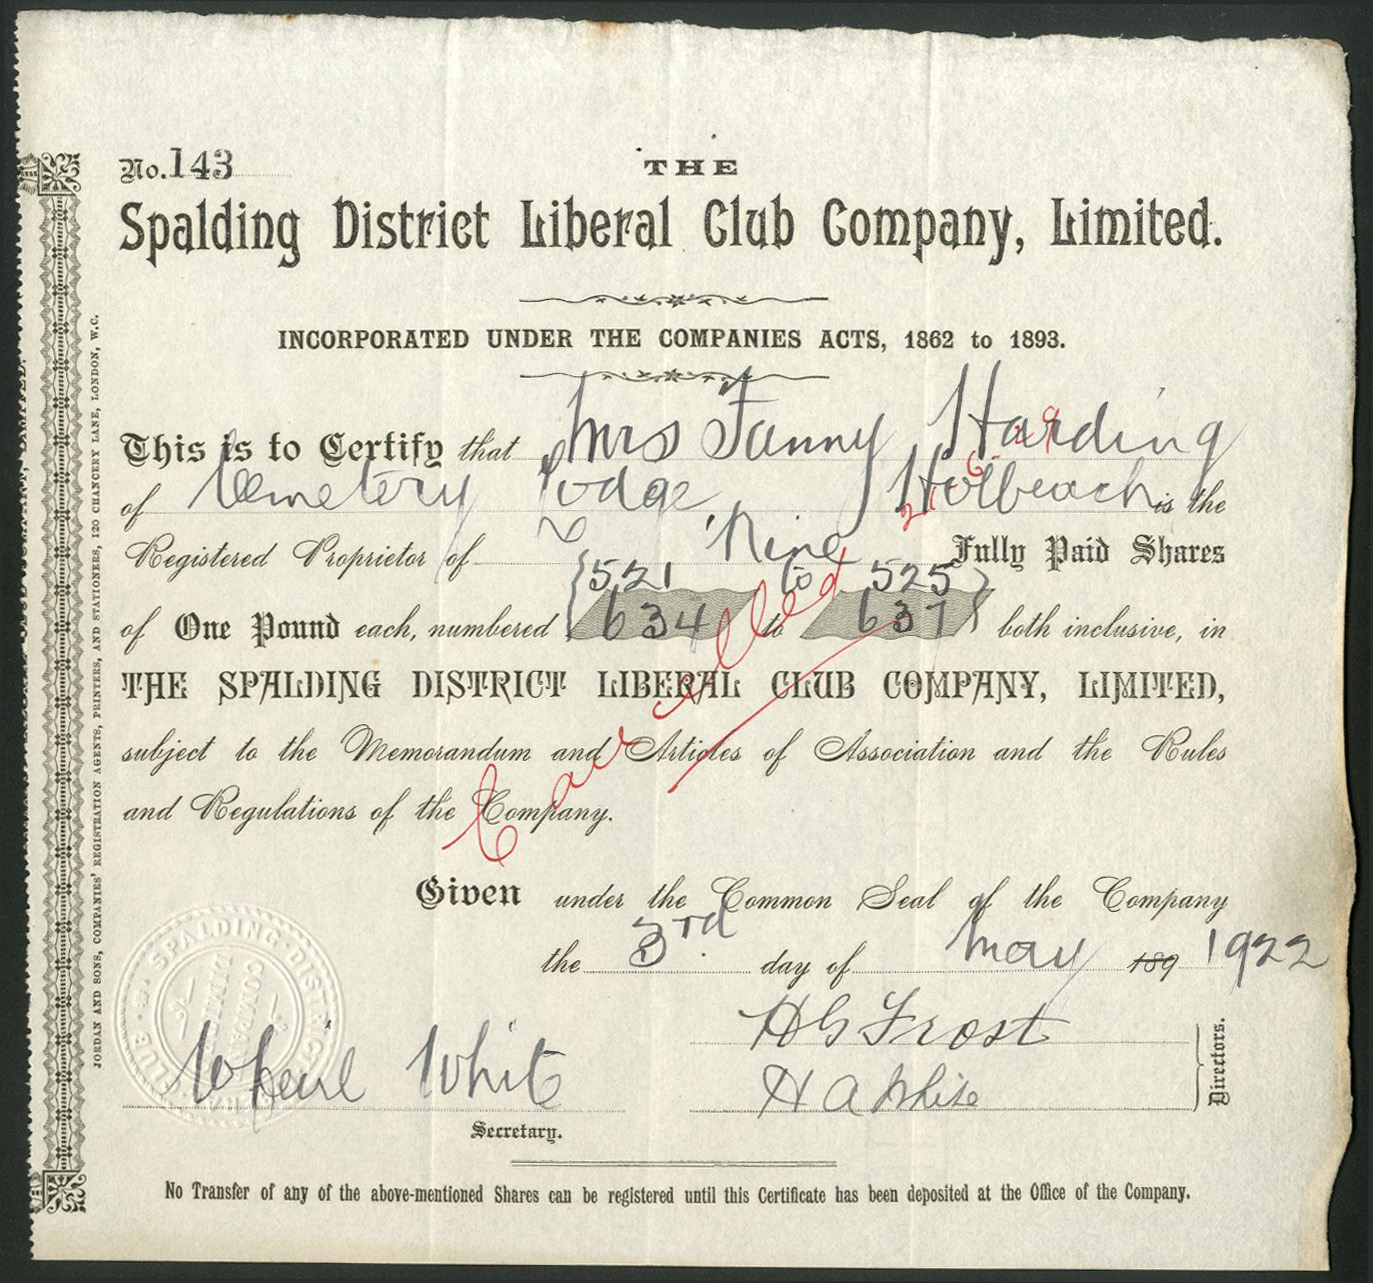 No. 143
THE
Spalding District Liberal Club Company, Limited.
INCORPORATED UNDER THE COMPANIES ACTS, 1862 to 1893.
This is to Certify that Mrs Fanny Harding
of Cemetery Lodge, Holbeach is the
Registered Proprietor of Nine Fully Paid Shares
521 to 525
of One Pound each, numbered 634 to 637 both inclusive, in
THE SPALDING DISTRICT LIBERAL CLUB COMPANY, LIMITED,
subject to the Memorandum and Articles of Association and the Rules
and Regulations of the Company.
Cancelled
Given under the Common Seal of the Company
the 3rd day of May 189 1922
H G Frost
H A White
Directors.
White
Secretary.
No Transfer of any of the above-mentioned Shares can be registered until this Certificate has been deposited at the Office of the Company.
JORDAN AND SONS, COMPANIES' REGISTRATION AGENTS, PRINTERS, AND STATIONERS, 120 CHANCERY LANE, LONDON, W.C.
SPALDING DISTRICT CLUB
COMPANY
LIMITED